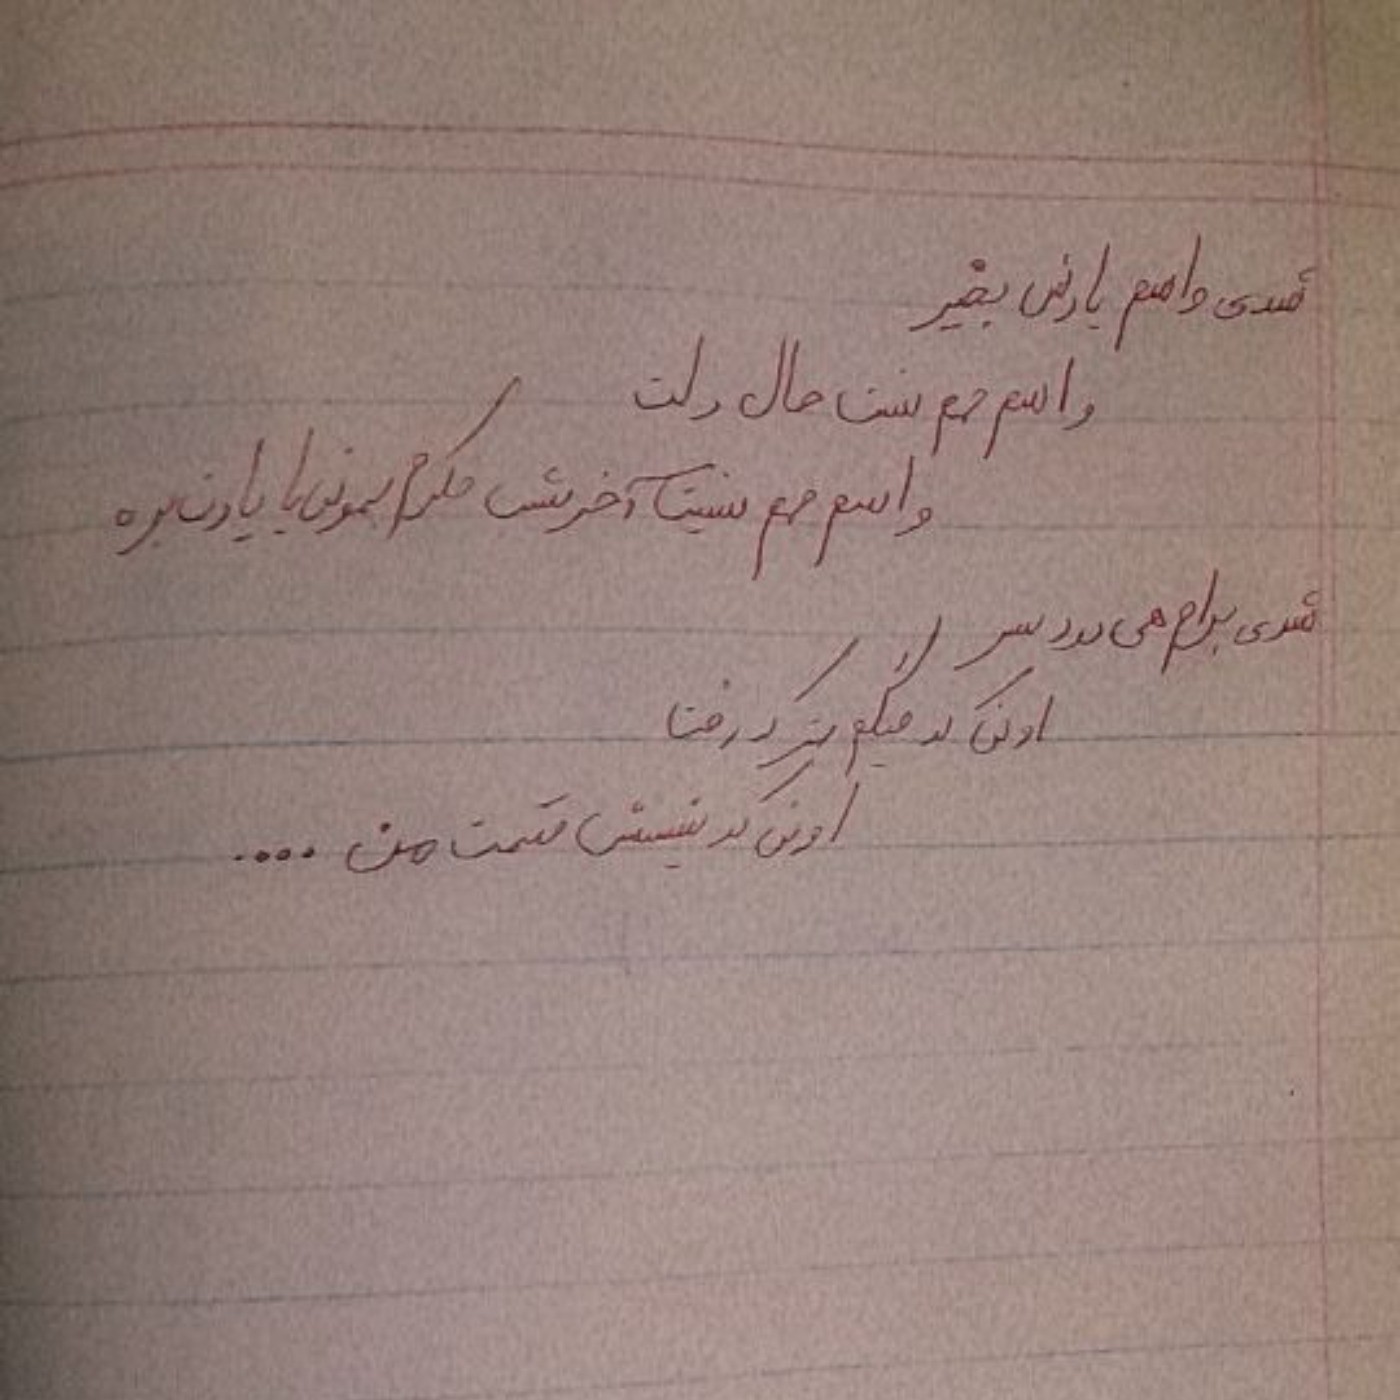 شدی واسم یادش بخیر
واسم مهم نیست حال دلت
واسم مهم نیستا آخرشب فکرم بمونی یا یادت بره
شدی برام هی درد سر
اونی که میگم بتر که رفتا
اونی که نیستش قسمت من ....